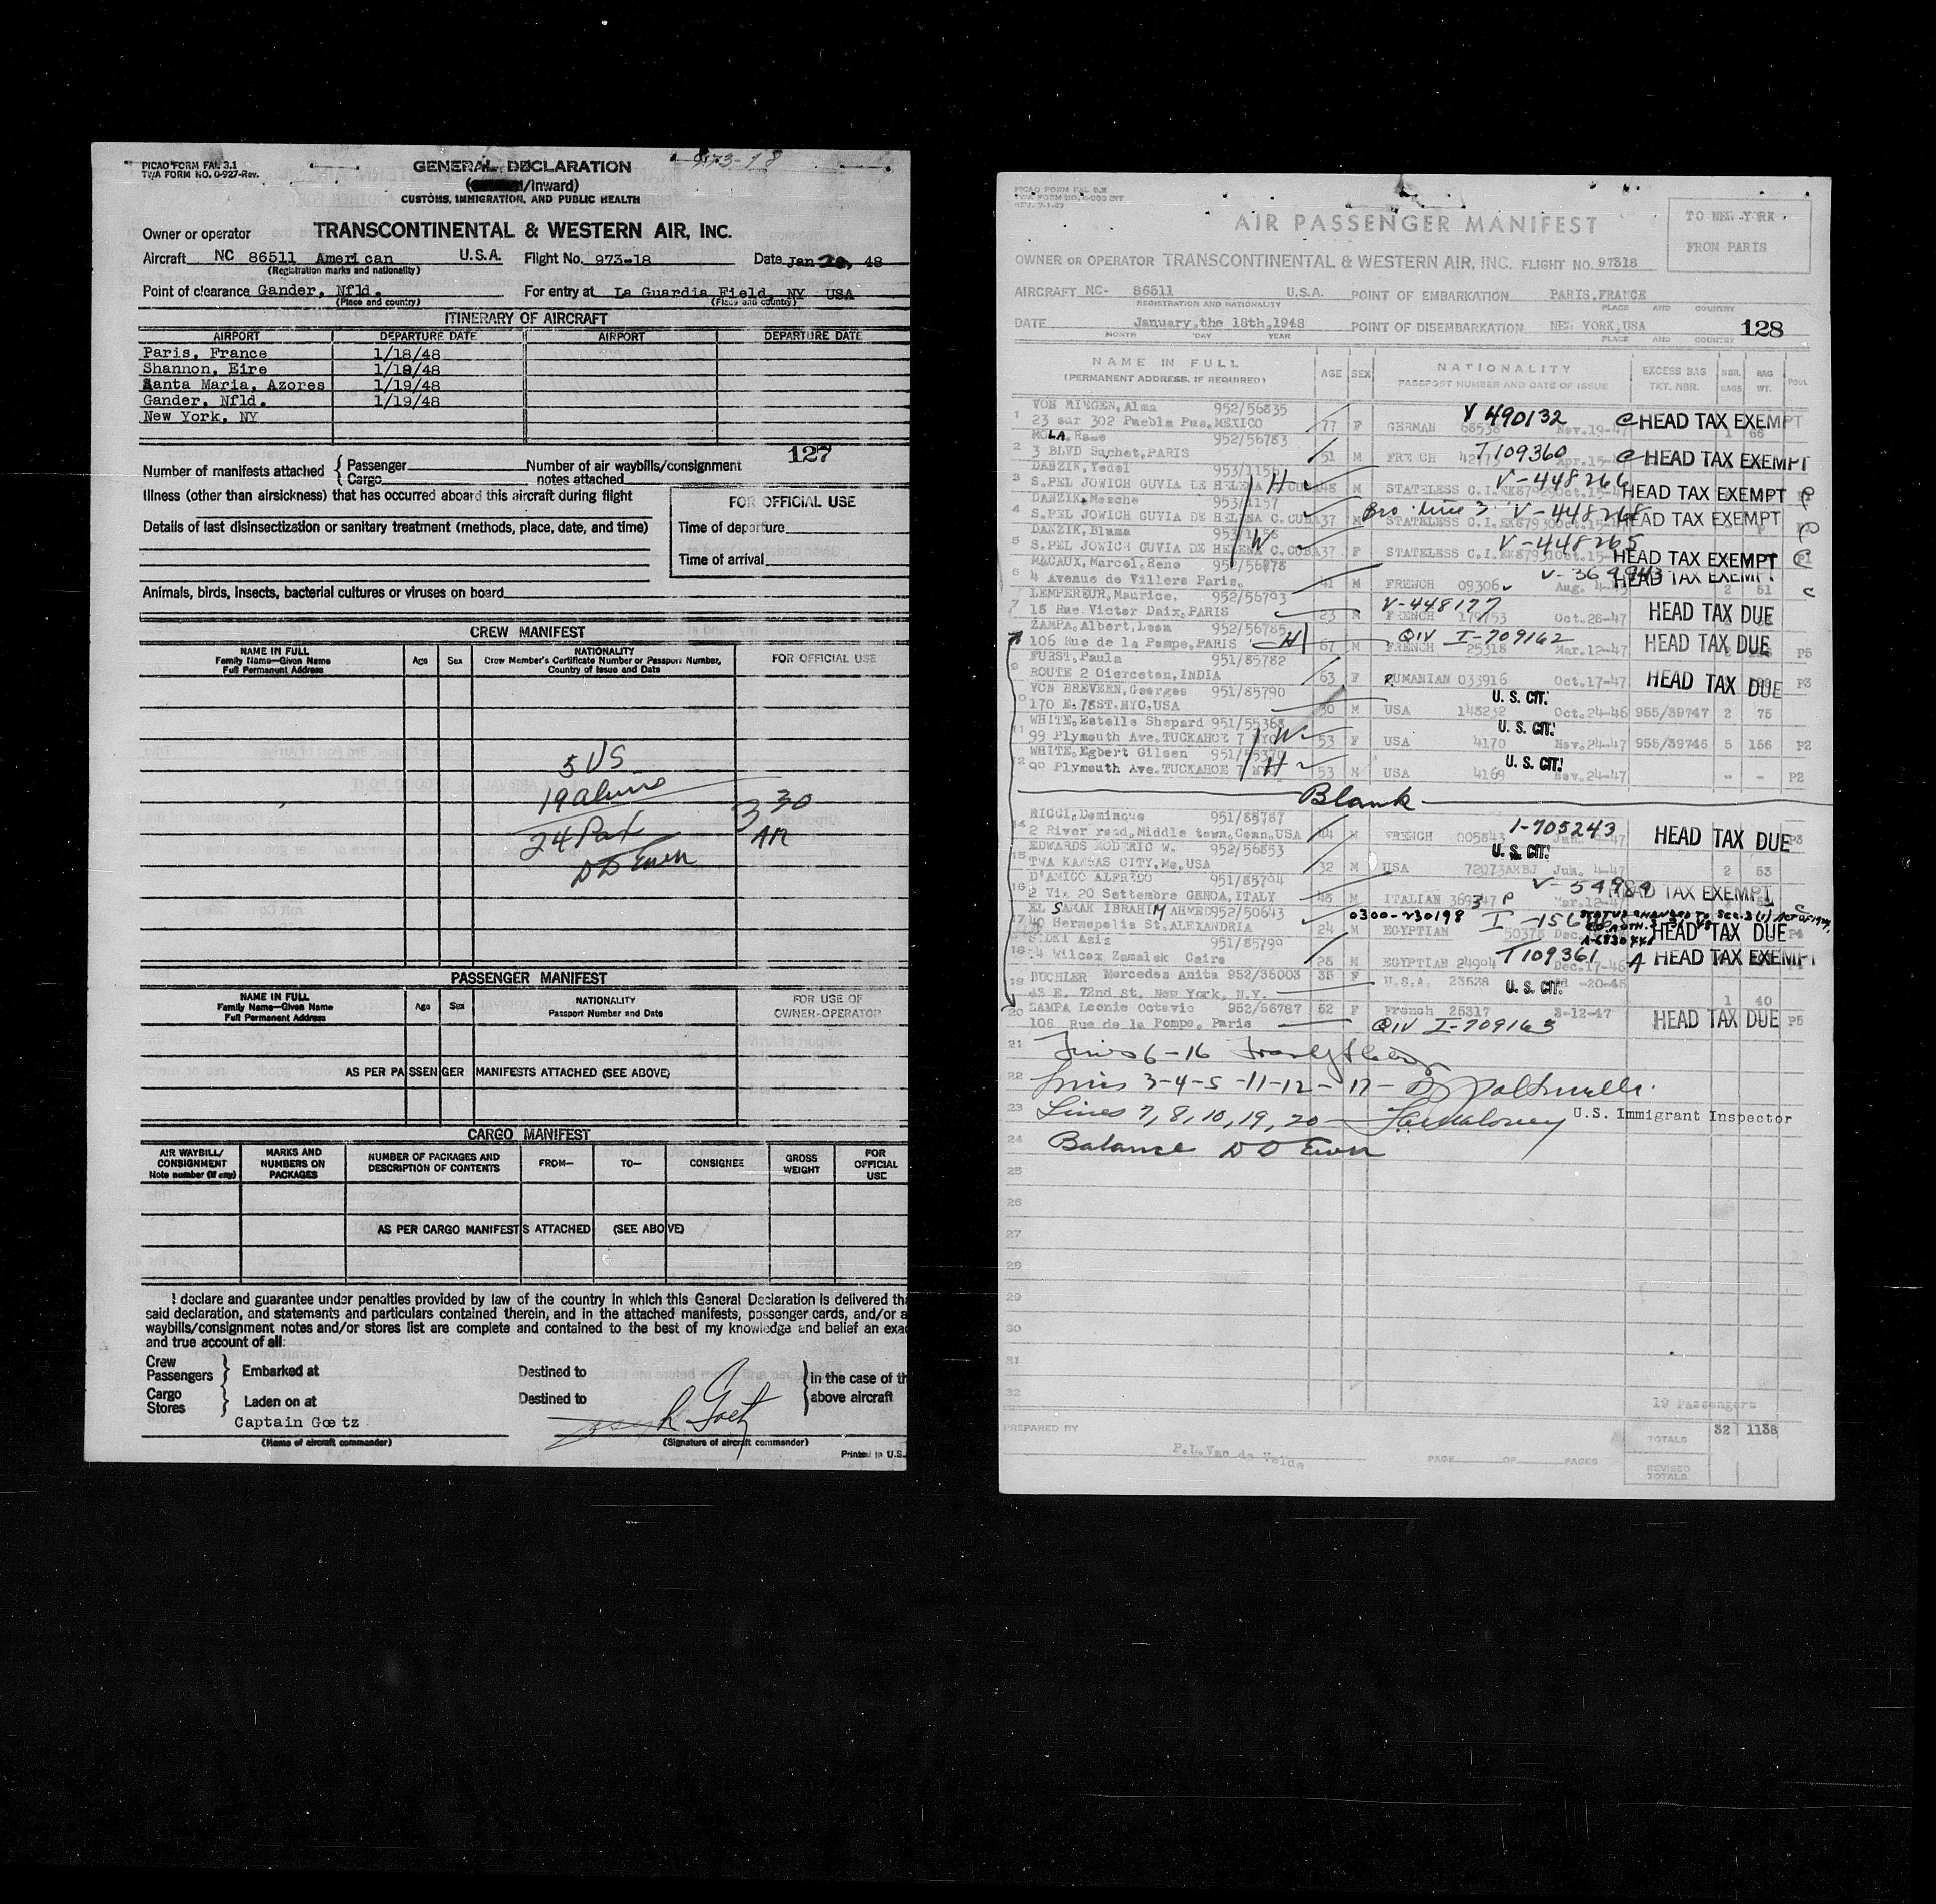 PICAO FORM FAL 3.1
TWA FORM NO. 0-927-Rev.
GENERAL DECLARATION
973-18
/Inward)
CUSTOMS, IMMIGRATION, AND PUBLIC HEALTH
Owner or operator TRANSCONTINENTAL & WESTERN AIR, INC.
Aircraft NC 86511 American U.S.A. Flight No. 973-18 Date Jan 20, 48
(Registration marks and nationality)
Point of clearance Gander, Nfld. For entry at La Guardia Field, NY USA
(Place and country) (Place and country)
ITINERARY OF AIRCRAFT
AIRPORT DEPARTURE DATE AIRPORT DEPARTURE DATE
Paris, France 1/18/48
Shannon, Eire 1/19/48
Santa Maria, Azores 1/19/48
Gander, Nfld. 1/19/48
New York, NY
127
Number of manifests attached { Passenger Number of air waybills/consignment
Cargo notes attached
Illness (other than airsickness) that has occurred aboard this aircraft during flight
FOR OFFICIAL USE
Details of last disinsectization or sanitary treatment (methods, place, date, and time)
Time of departure
Time of arrival
Animals, birds, insects, bacterial cultures or viruses on board
CREW MANIFEST
NAME IN FULL
Family Name—Given Name
Full Permanent Address
Age Sex
NATIONALITY
Crew Member's Certificate Number or Passport Number,
Country of Issue and Date
FOR OFFICIAL USE
5 US
19 aliens
24 Pax
3 30
AM
D D Ewen
PASSENGER MANIFEST
NAME IN FULL
Family Name—Given Name
Full Permanent Address
Age Sex
NATIONALITY
Passport Number and Date
FOR USE OF
OWNER-OPERATOR
AS PER PASSENGER MANIFESTS ATTACHED (SEE ABOVE)
CARGO MANIFEST
AIR WAYBILL/
CONSIGNMENT
Note number (if any)
MARKS AND
NUMBERS ON
PACKAGES
NUMBER OF PACKAGES AND
DESCRIPTION OF CONTENTS
FROM— TO— CONSIGNEE
GROSS
WEIGHT
FOR
OFFICIAL
USE
AS PER CARGO MANIFESTS ATTACHED (SEE ABOVE)
I declare and guarantee under penalties provided by law of the country in which this General Declaration is delivered tha
said declaration, and statements and particulars contained therein, and in the attached manifests, passenger cards, and/or a
waybills/consignment notes and/or stores list are complete and contained to the best of my knowledge and belief an exac
and true account of all:
Crew
Passengers } Embarked at Destined to
Cargo
Stores } Laden on at Destined to
in the case of th
above aircraft
Captain Goetz
Joseph Goetz
(Name of aircraft commander) (Signature of aircraft commander)
Printed in U.S.
AIR PASSENGER MANIFEST
TO NEW YORK
FROM PARIS
OWNER OR OPERATOR TRANSCONTINENTAL & WESTERN AIR, INC. FLIGHT NO. 97318
AIRCRAFT NC- 86511 U.S.A. POINT OF EMBARKATION PARIS, FRANCE
REGISTRATION AND NATIONALITY PLACE AND COUNTRY
DATE January, the 18th, 1948 POINT OF DISEMBARKATION NEW YORK, USA 128
MONTH DAY YEAR PLACE AND COUNTRY
NAME IN FULL
(PERMANENT ADDRESS, IF REQUIRED)
AGE SEX
NATIONALITY
PASSPORT NUMBER AND DATE OF ISSUE
EXCESS BAG
TKT. NBR.
NBR.
BAGS
BAG
WT.
POOL
1 VON MINGEN, Alma 952/56835 V 490132
23 sur 302 Puebla Pue, MEXICO 77 F GERMAN 68538 Nov.19-47 HEAD TAX EXEMPT
2 MOLA, Rene 952/56783 T 109360
3 BLVD Suchet, PARIS 51 M FRENCH Apr.15- HEAD TAX EXEMPT
3 DANZIK, Yedel 953/1156 H V-448266
S.PEL JOWICH GUVIA DE HELENA C. CUBA M STATELESS C.I. Oct.15-4 HEAD TAX EXEMPT
4 DANZIK, Mosche 953/1157 Bro line 3 V-448268
S.PEL JOWICH GUVIA DE HELENA C. CUBA 37 M STATELESS C.I. HEAD TAX EXEMPT
5 DANZIK, Blama 953/1158 W V-448265
S.PEL JOWICH GUVIA DE HELENA C. CUBA 37 F STATELESS C.I. Oct.15- HEAD TAX EXEMPT
6 MACAUX, Marcel, Rene 952/56778
4 Avenue de Villers Paris, 41 M FRENCH 09306 Aug. HEAD TAX EXEMPT 2 51
7 LEMPEREUR, Maurice, 952/56793 V-448177
15 Rue Victor Daix, PARIS 23 FRENCH 179753 Oct.28-47 HEAD TAX DUE
ZAMPA, Albert, Leon 952/56785 H QIV I-709162
106 Rue de la Pompe, PARIS 67 M FRENCH 25318 Mar.12-47 HEAD TAX DUE P5
9 FURST, Paula 951/85782
ROUTE 2 Oierceton, INDIA 63 F RUMANIAN 033916 Oct.17-47 HEAD TAX DUE P3
VON BREVERN, Georges 951/85790 U. S. CIT.
170 E. 78ST. NYC, USA 30 M USA 148232 Oct.24-46 955/39747 2 75
11 WHITE, Estelle Shepard 951/55368 W U. S. CIT.
99 Plymouth Ave. TUCKAHOE 7 NYC 53 F USA 4170 Nov.24-47 955/39746 5 156 P2
12 WHITE, Egbert Gilsen H U. S. CIT.
99 Plymouth Ave. TUCKAHOE 7 53 M USA 4169 Nov.24-47 - - P2
Blank
14 RICCI, Dominque 951/85787 I-705243
2 River road, Middle town, Conn, USA 44 M FRENCH HEAD TAX DUE P3
15 EDWARDS RODERIC W. 952/56853 U. S. CIT.
TWA KANSAS CITY, Mo, USA 32 M USA Jun. 4-47 2 53
16 D'AMICO ALFREDO 951/85794
2 Via 20 Settembre GENOA, ITALY 45 M ITALIAN Mar.12-47 HEAD TAX EXEMPT
17 EL SAMAK IBRAHIM AHMED 952/50643 0300-230198
Hermopolis St, ALEXANDRIA 24 M EGYPTIAN 50378 Dec. HEAD TAX DUE P4
18 SIDKI Aziz 951/85799 T 109361
4 Wilcox Zamalek Cairo 28 M EGYPTIAN 24904 Dec.17-46 A HEAD TAX EXEMPT
19 BUCHLER Mercedes Anita 952/35003 35 F U.S.A. 23538 U. S. CIT.
43 E. 72nd St. New York, N.Y. 1 40
20 ZAMPA Leonie Octavie 952/56787 62 F French 25317 3-12-47
106 Rue de la Pompe, Paris QIV I-709163 HEAD TAX DUE P5
21 Lines 6-16
22 Lines 3-4-5-11-12-17-
23 Lines 7, 8, 10, 19, 20 - U.S. Immigrant Inspector
24 Balance D D Ewen
25
26
27
28
29
30
31
32
19 Passengers
PREPARED BY P.L. Van de Velde PAGE OF PAGES TOTALS 32 1138
REVISED
TOTALS